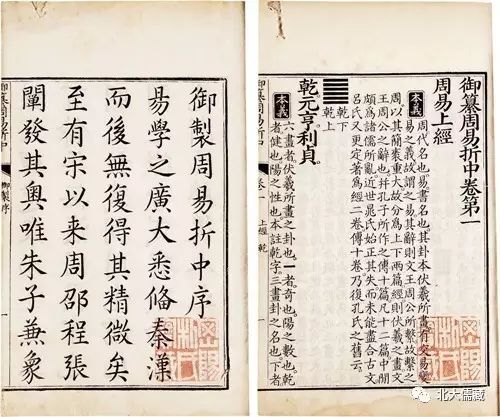 御製周易折中序
易學之廣大悉備秦漢
而後無復得其精微矣
至有宋以來周邵程張
闡發其奧唯朱子兼象
御纂周易折中 御製序
御纂周易折中卷第一
周易上經
本義 周代名也易書名也其卦本伏羲所畫有交易變
易之義故謂之易其辭則文王周公所繫故繫之
周以其簡袠重大故分為上下兩篇經則伏羲之畫文
王周公之辭也并孔子所作之傳十篇凡十二篇中間
頗為諸儒所亂近世晁氏始正其失而未能盡合古文
呂氏又更定著為經二卷傳十卷乃復孔氏之舊云
乾下
乾上
乾元亨利貞
本義 六畫者伏羲所畫之卦也一者奇也陽之數也乾
者健也陽之性也本註乾字三畫卦之名也下者
御纂周易折中 卷一 上經 乾
北大儒藏